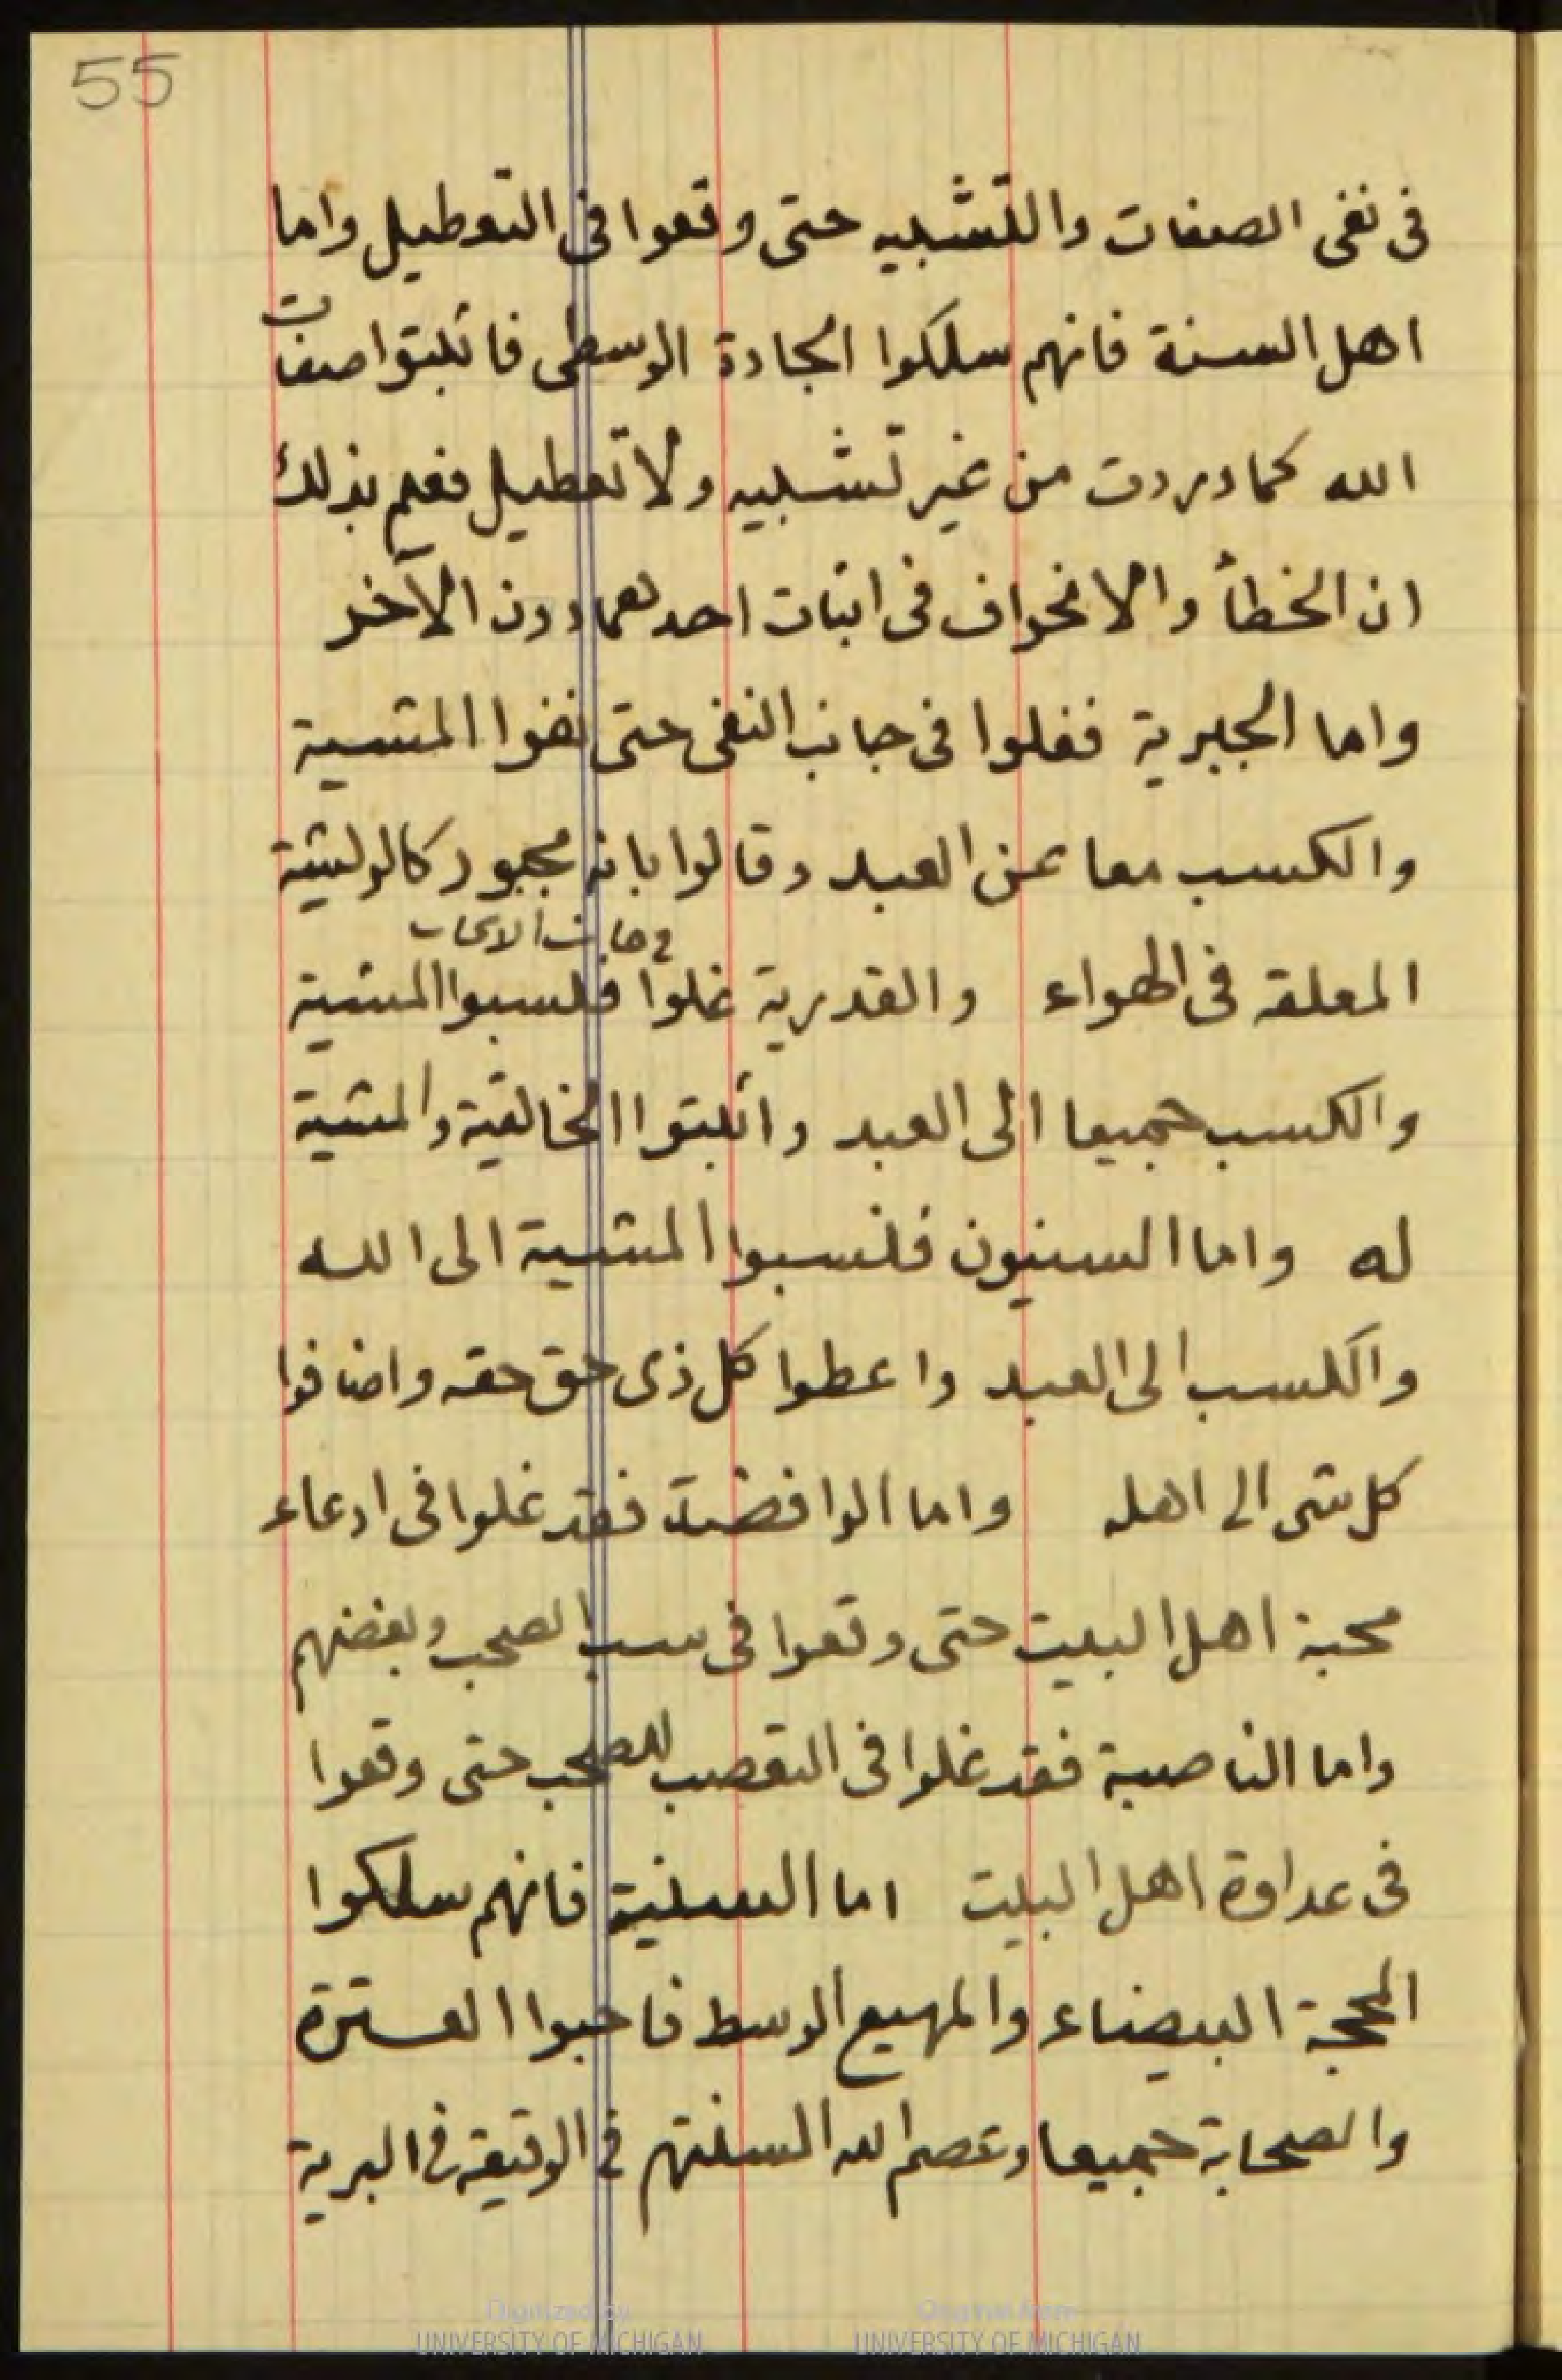 55
فى نفى الصفات والتشبيه حتى وقعوا فى التعطيل واما
اهل السنة فانهم سلكوا الجادة الوسطى فاثبتوا صفات
الله كما وردت من غير تشبيه ولا تعطيل فعلم بذلك
ان الخطأ والانحراف فى اثبات احدهما دون الآخر
واما الجبرية فغلوا فى جانب النفى حتى نفوا المشية
والكسب معا عن العبد وقالوا بانه مجبور كالوليشة
فى جانب الايجاب
المعلقه فى الهواء والقدرية غلوا فنسبوا المشية
والكسب جميعا الى العبد واثبتوا الخالقية والمشية
له واما السنيون فنسبوا المشية الى الله
والكسب الى العبد واعطوا كل ذى حق حقه واضافوا
كل شى الى اهله واما الوافضة فقد غلوا فى ادعاء
محبة اهل البيت حتى وقعوا فى سب الصحب وبغضهم
واما الناصبة فقد غلوا فى التعصب للصحب حتى وقعوا
فى عداوة اهل البيت اما السنية فانهم سلكوا
المحجة البيضاء والمهيع الوسط فاحبوا العترة
والصحابة جميعا وعصم الله السنتهم فى الوقيعة فى البرية
Digitized by
UNIVERSITY OF MICHIGAN
Original from
UNIVERSITY OF MICHIGAN